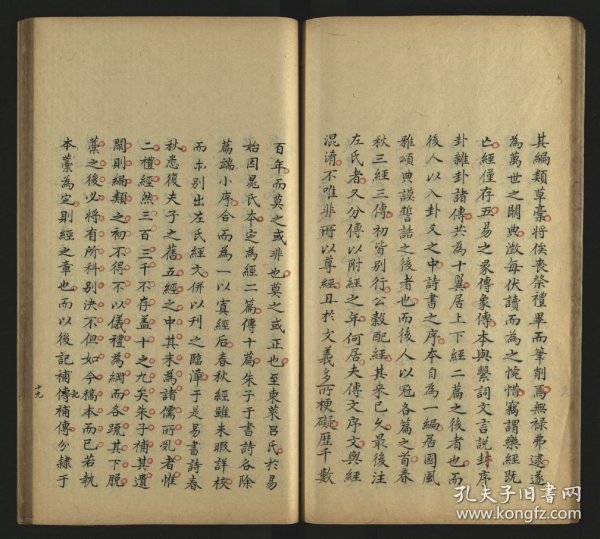 其編類草藁將俟喪祭禮畢而筆削焉無祿弗逮遂
為萬世之闕典澂每伏讀而為之惋惜竊謂樂經既
亡經僅存五易之彖傳象傳本與繫詞文言說卦序
卦雜卦諸傳共為十翼居上下經二篇之後者也而
後人以入卦爻之中詩書之序本自為一編居國風
雅頌典謨誓誥之後者也而後人以冠各篇之首春
秋三經三傳初皆別行公穀配經其来已久最後注
左氏者又分傳以附經之年何居夫傳文序文與經
混淆不唯非所以尊經且於文義多所梗礙歴千數
百年而莫之或非也莫之或正也至東萊呂氏於易
始因晁氏本定為經二篇傳十篇朱子于書詩各除
篇端小序合而為一以寘經后春秋經雖未暇詳校
而亦别出左氏經文併以刊之臨漳于是易書詩春
秋悉復夫子之舊五經之中其未為諸儒所亂者惟
二禮經然三百三千不存盖十之九矣朱子補其遺
闕則編類之初不得不以儀禮為綱而各疏其下脱
藁之後必將有所科别決不但如今稿本而已若執
本藁為定則經之章也而以後記補傳補傳分隷于
九
十九
孔夫子旧书网
www.kongfz.com